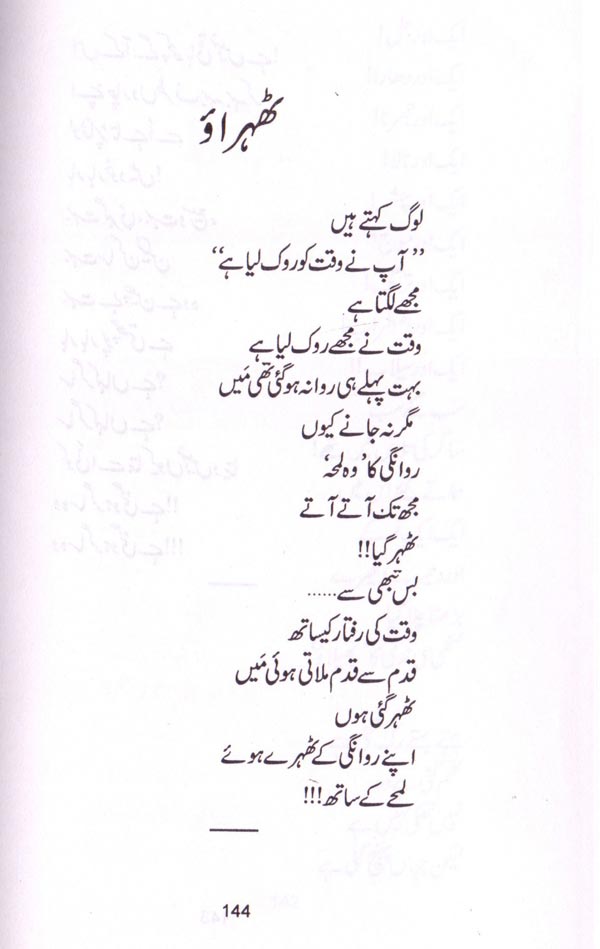 ٹھہراؤ
لوگ کہتے ہیں
”آپ نے وقت کو روک لیا ہے“
مجھے لگتا ہے
وقت نے مجھے روک لیا ہے
بہت پہلے ہی روانہ ہو گئی تھی مَیں
مگر نہ جانے کیوں
روانگی کا ’وہ لمحہ‘
مجھ تک آتے آتے
ٹھہر گیا!!
بس تبھی سے......
وقت کی رفتار کیساتھ
قدم سے قدم ملاتی ہوئی مَیں
ٹھہر گئی ہوں
اپنے روانگی کے ٹھہرے ہوئے
لمحے کے ساتھ!!!
144